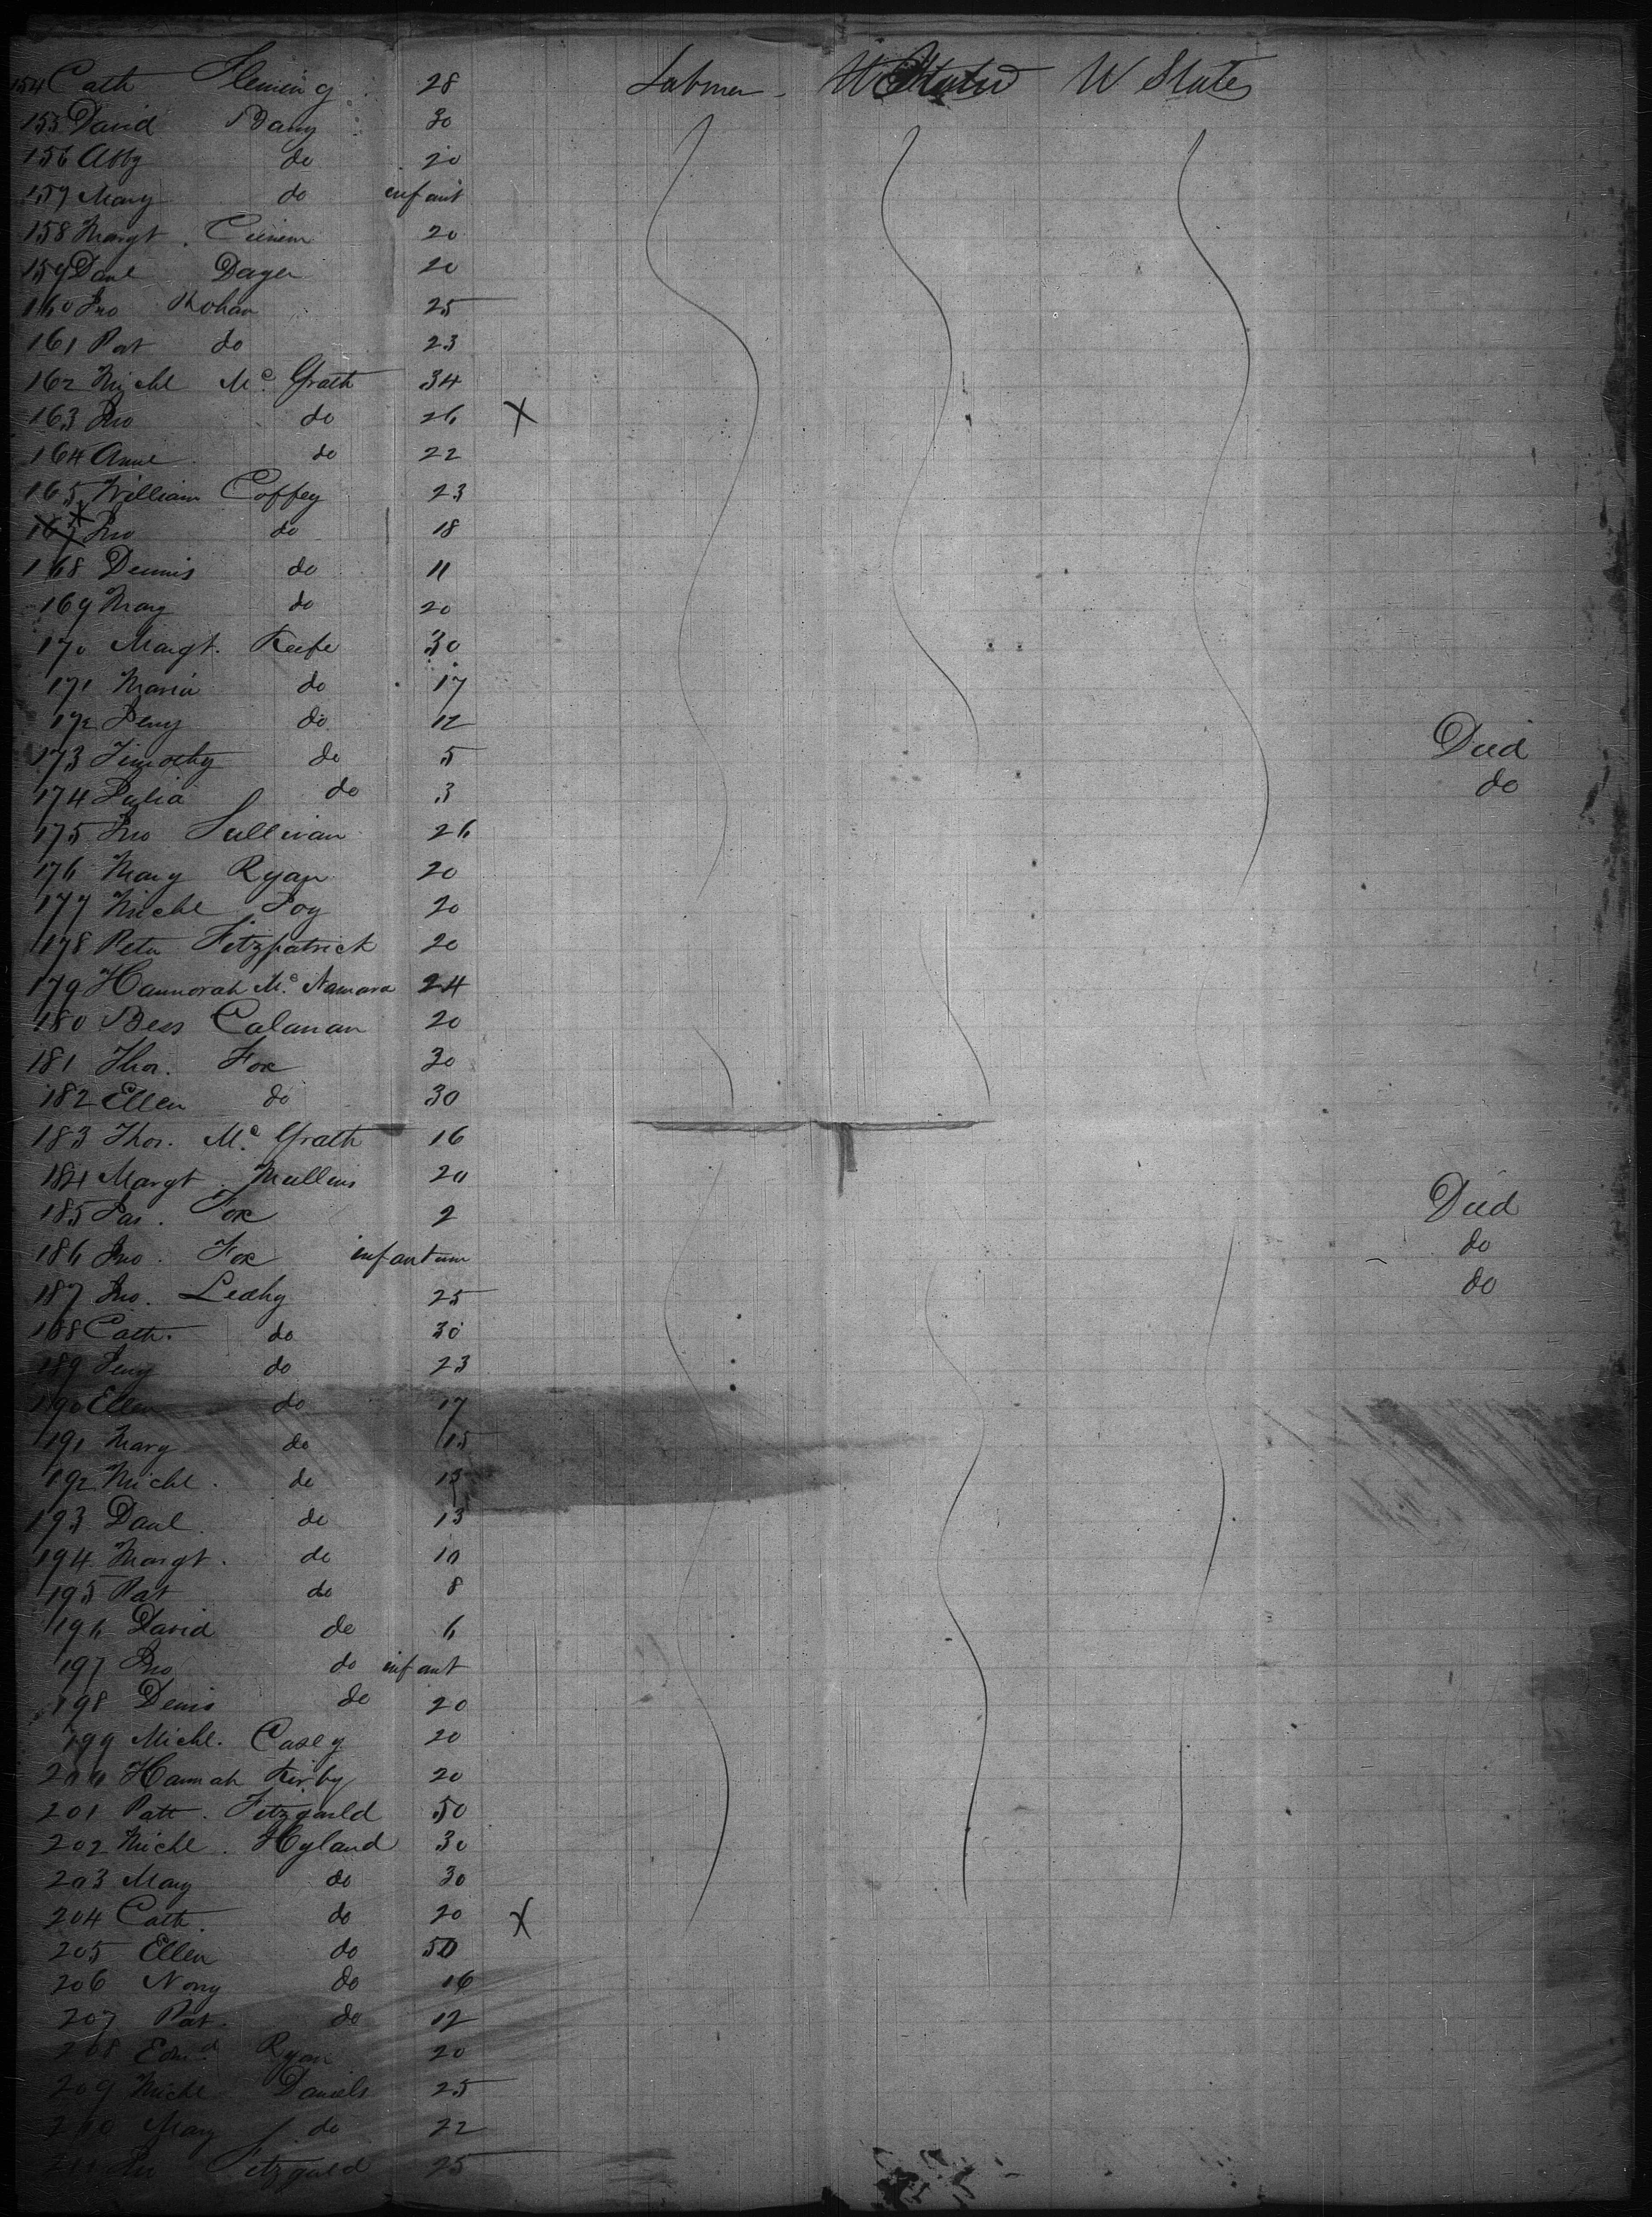 154 Cath Fleming 28 Labrner - W States
155 David Barry 30
156 Abby do 20
157 Mary do infant
158 Margt. 20
159 Danl 20
160 Jno Rohan 25
161 Pat do 23
162 Michl Mc Grath 34
163 Jno do 26 X
164 Anne do 22
165 William Coffey 23
167 Jno do 18
168 Dennis do 11
169 Mary do 20
170 Margt. Keefe 30
171 Maria do 17
172 Jeny do 12
173 Timothy do 5 Died
174 Julia do 3 do
175 Jno Sullivan 26
176 Mary Ryan 20
177 Michl 20
178 Peter Fitzpatrick 20
179 Hannorah Mc Namara 24
180 Bess Calanan 20
181 Thos. Fox 30
182 Ellen do 30
183 Thos. Mc Grath 16
184 Margt. Mullins 20
185 Jas. Fox 2 Died
186 Jno. Fox infantum do
187 Jno. Leahy 25 do
188 Cath. do 30
189 Jeny do 23
190 Ellen do 17
191 Mary do 15
192 Michl. do 15
193 Danl. do 13
194 Margt. do 10
195 Pat do 8
196 David do 6
197 Jno do infant
198 Denis do 20
199 Michl. Casey 20
200 Hannah Kirby 20
201 Patt. Fitzgarld 50
202 Michl. Hyland 30
203 Mary do 30
204 Cath. do 20 X
205 Ellen do 50
206 Nony do 16
207 Pat. do 12
208 Edmd. Ryan 20
209 Michl Daniels 25
210 Mary do 22
211 Jno Fitzgarld 25